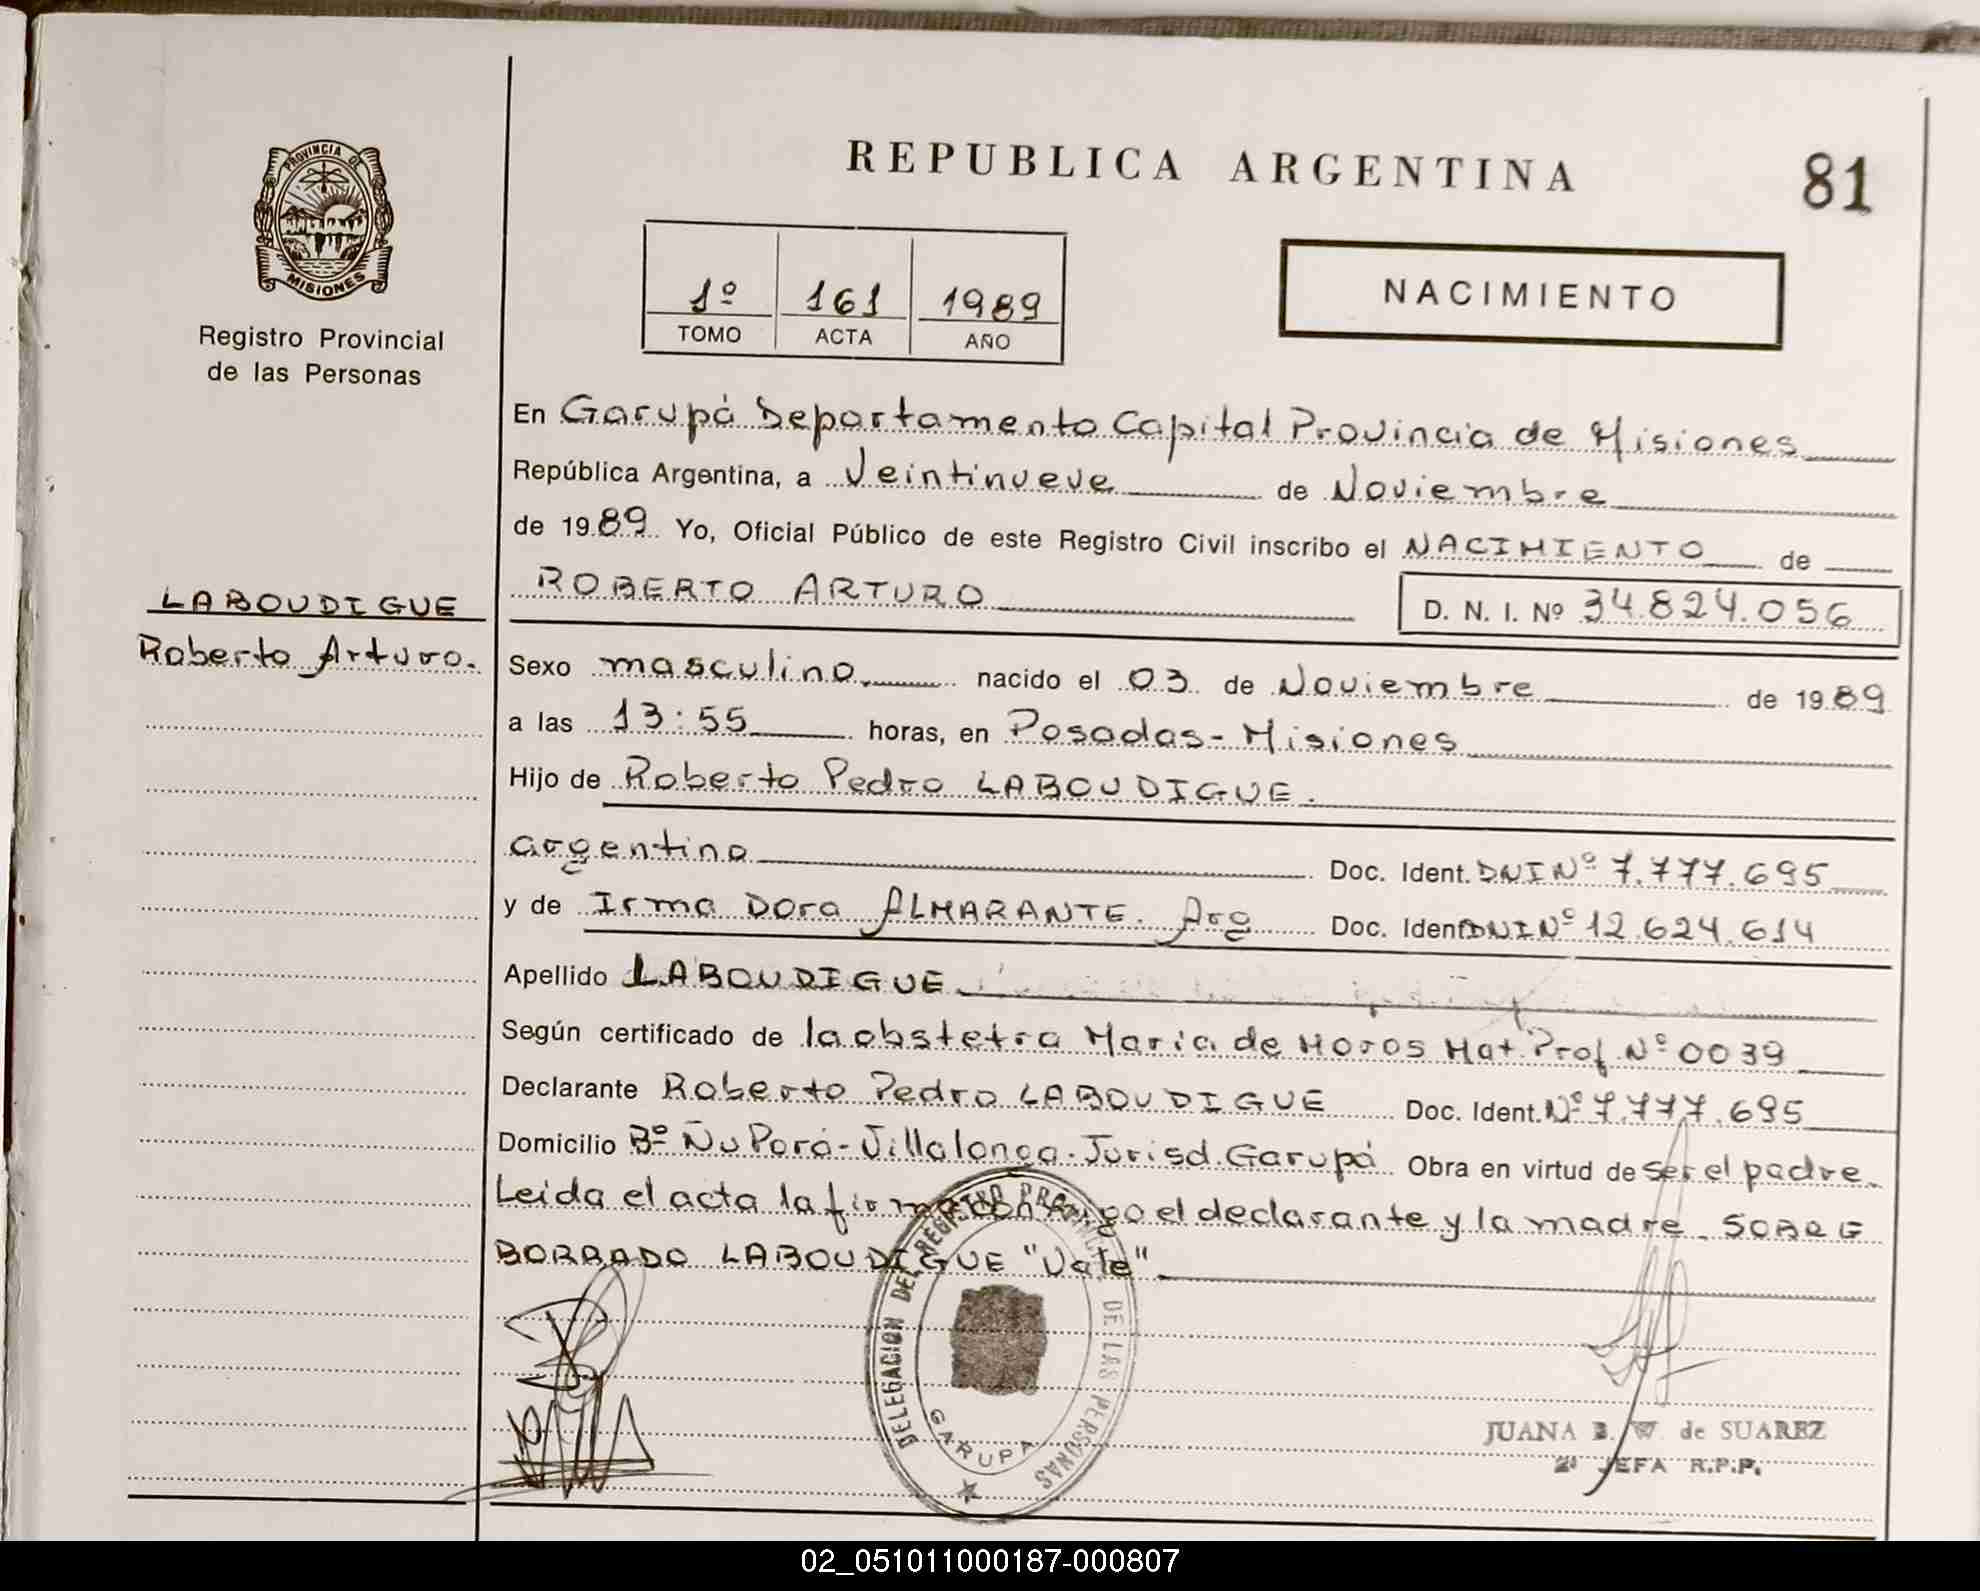 REPUBLICA ARGENTINA
81
PROVINCIA DE
MISIONES
Registro Provincial
de las Personas
1º 161 1989
TOMO ACTA AÑO
NACIMIENTO
En Garupá Departamento Capital Provincia de Misiones
República Argentina, a Veintinueve de Noviembre
de 1989 Yo, Oficial Público de este Registro Civil inscribo el NACIMIENTO de
ROBERTO ARTURO D. N. I. Nº 34.824.056
LABOUDIGUE
Roberto Arturo.
Sexo masculino nacido el 03 de Noviembre de 1989
a las 13:55 horas, en Posadas - Misiones
Hijo de Roberto Pedro LABOUDIGUE.
argentino Doc. Ident. DNI Nº 7.777.695
y de Irma Dora ALMARANTE. Arg Doc. Ident DNI Nº 12.624.614
Apellido LABOUDIGUE
Según certificado de la obstetra Maria de Moros Mat. Prof. Nº 0039
Declarante Roberto Pedro LABOUDIGUE Doc. Ident. Nº 7.777.695
Domicilio Bº Ñu Porá - Villalonga - Jurisd. Garupá Obra en virtud de ser el padre.
Leida el acta la firman conmigo el declarante y la madre. SOBRE
BORRADO LABOUDIGUE "Vale"
DELEGACION DEL REGISTRO PROVINCIAL DE LAS PERSONAS
GARUPA
JUANA B. W. de SUAREZ
2ª JEFA R.P.P.
02_051011000187-000807